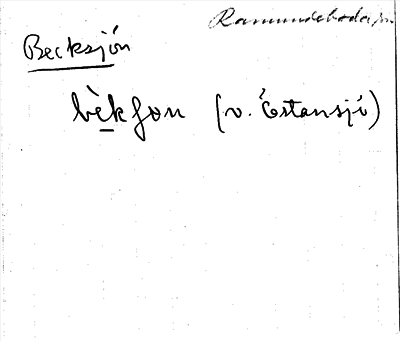 Ramundeboda sn
Becksjön
bèkʃɷn (v. Östansjö)